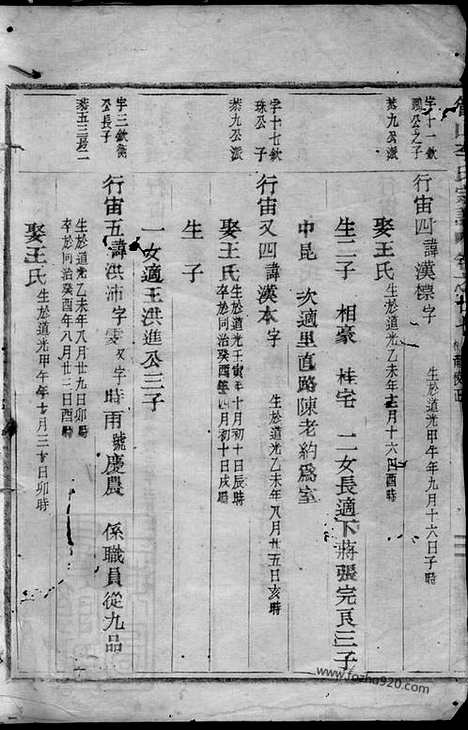 字十一欽
公之子
恭九公派
行宙四諱漢標字
生於道光甲午年九月十六日子時
娶王氏
生於道光乙未年十二月十六日酉時
生二子 相豪 桂宅 二女長適下蔣張完艮三子
中昆 次適里直路陳老約爲室
字十七欽
珠公子
恭九公派
行宙又四諱漢本字
生於道光乙未年八月廿五日亥時
娶王氏
生於道光壬寅年十月初十日辰時
卒於同治癸酉年四月初十日戌時
生 子
一女適王洪進公三子
字三欽衡
公長子
恭五三公
行宙五諱洪沛字雯又字時雨號慶農 係職員從九品
生於道光乙未年八月廿九日卯時
卒於同治癸酉年八月廿三日酉時
娶王氏
生於道光甲午年十月三十日卯時
www.fozhu920.com